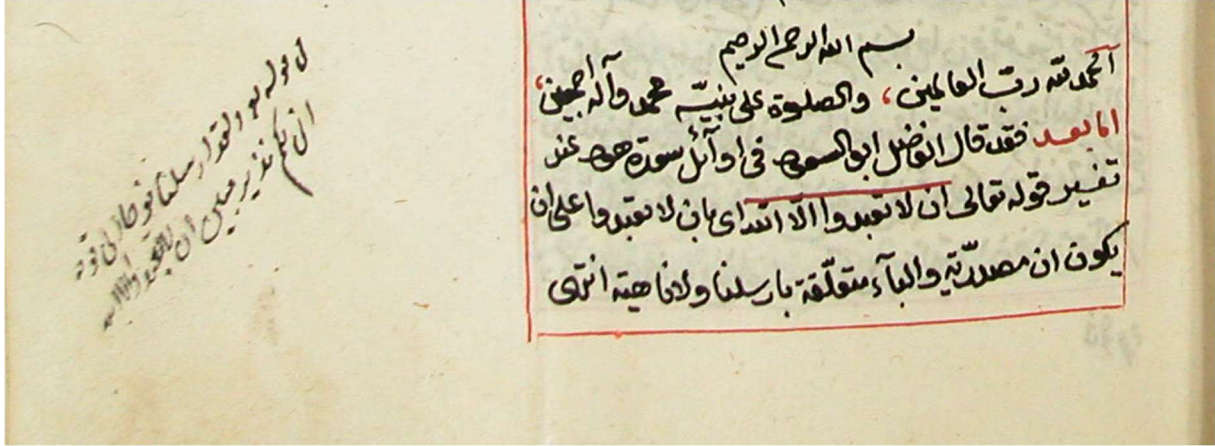 بسم الله الرحمن الرحيم
الحمد لله رب العالمين، والصلوة على نبيّه محمد وآله اجمعين،
اما بعد فقد قال الفاضل ابو السعود فى اوآئل سورة هود عند
تفسير قوله تعالى ان لا تعبدوا الّا الله اى بان لا تعبدوا على ان
يكون ان مصدريّة والبآء متعلّقة بارسلنا ولا ناهية انتهى
ولقد ارسلنا نوحا الى قومه
انى لكم نذير مبين ان لا تعبدوا الا الله